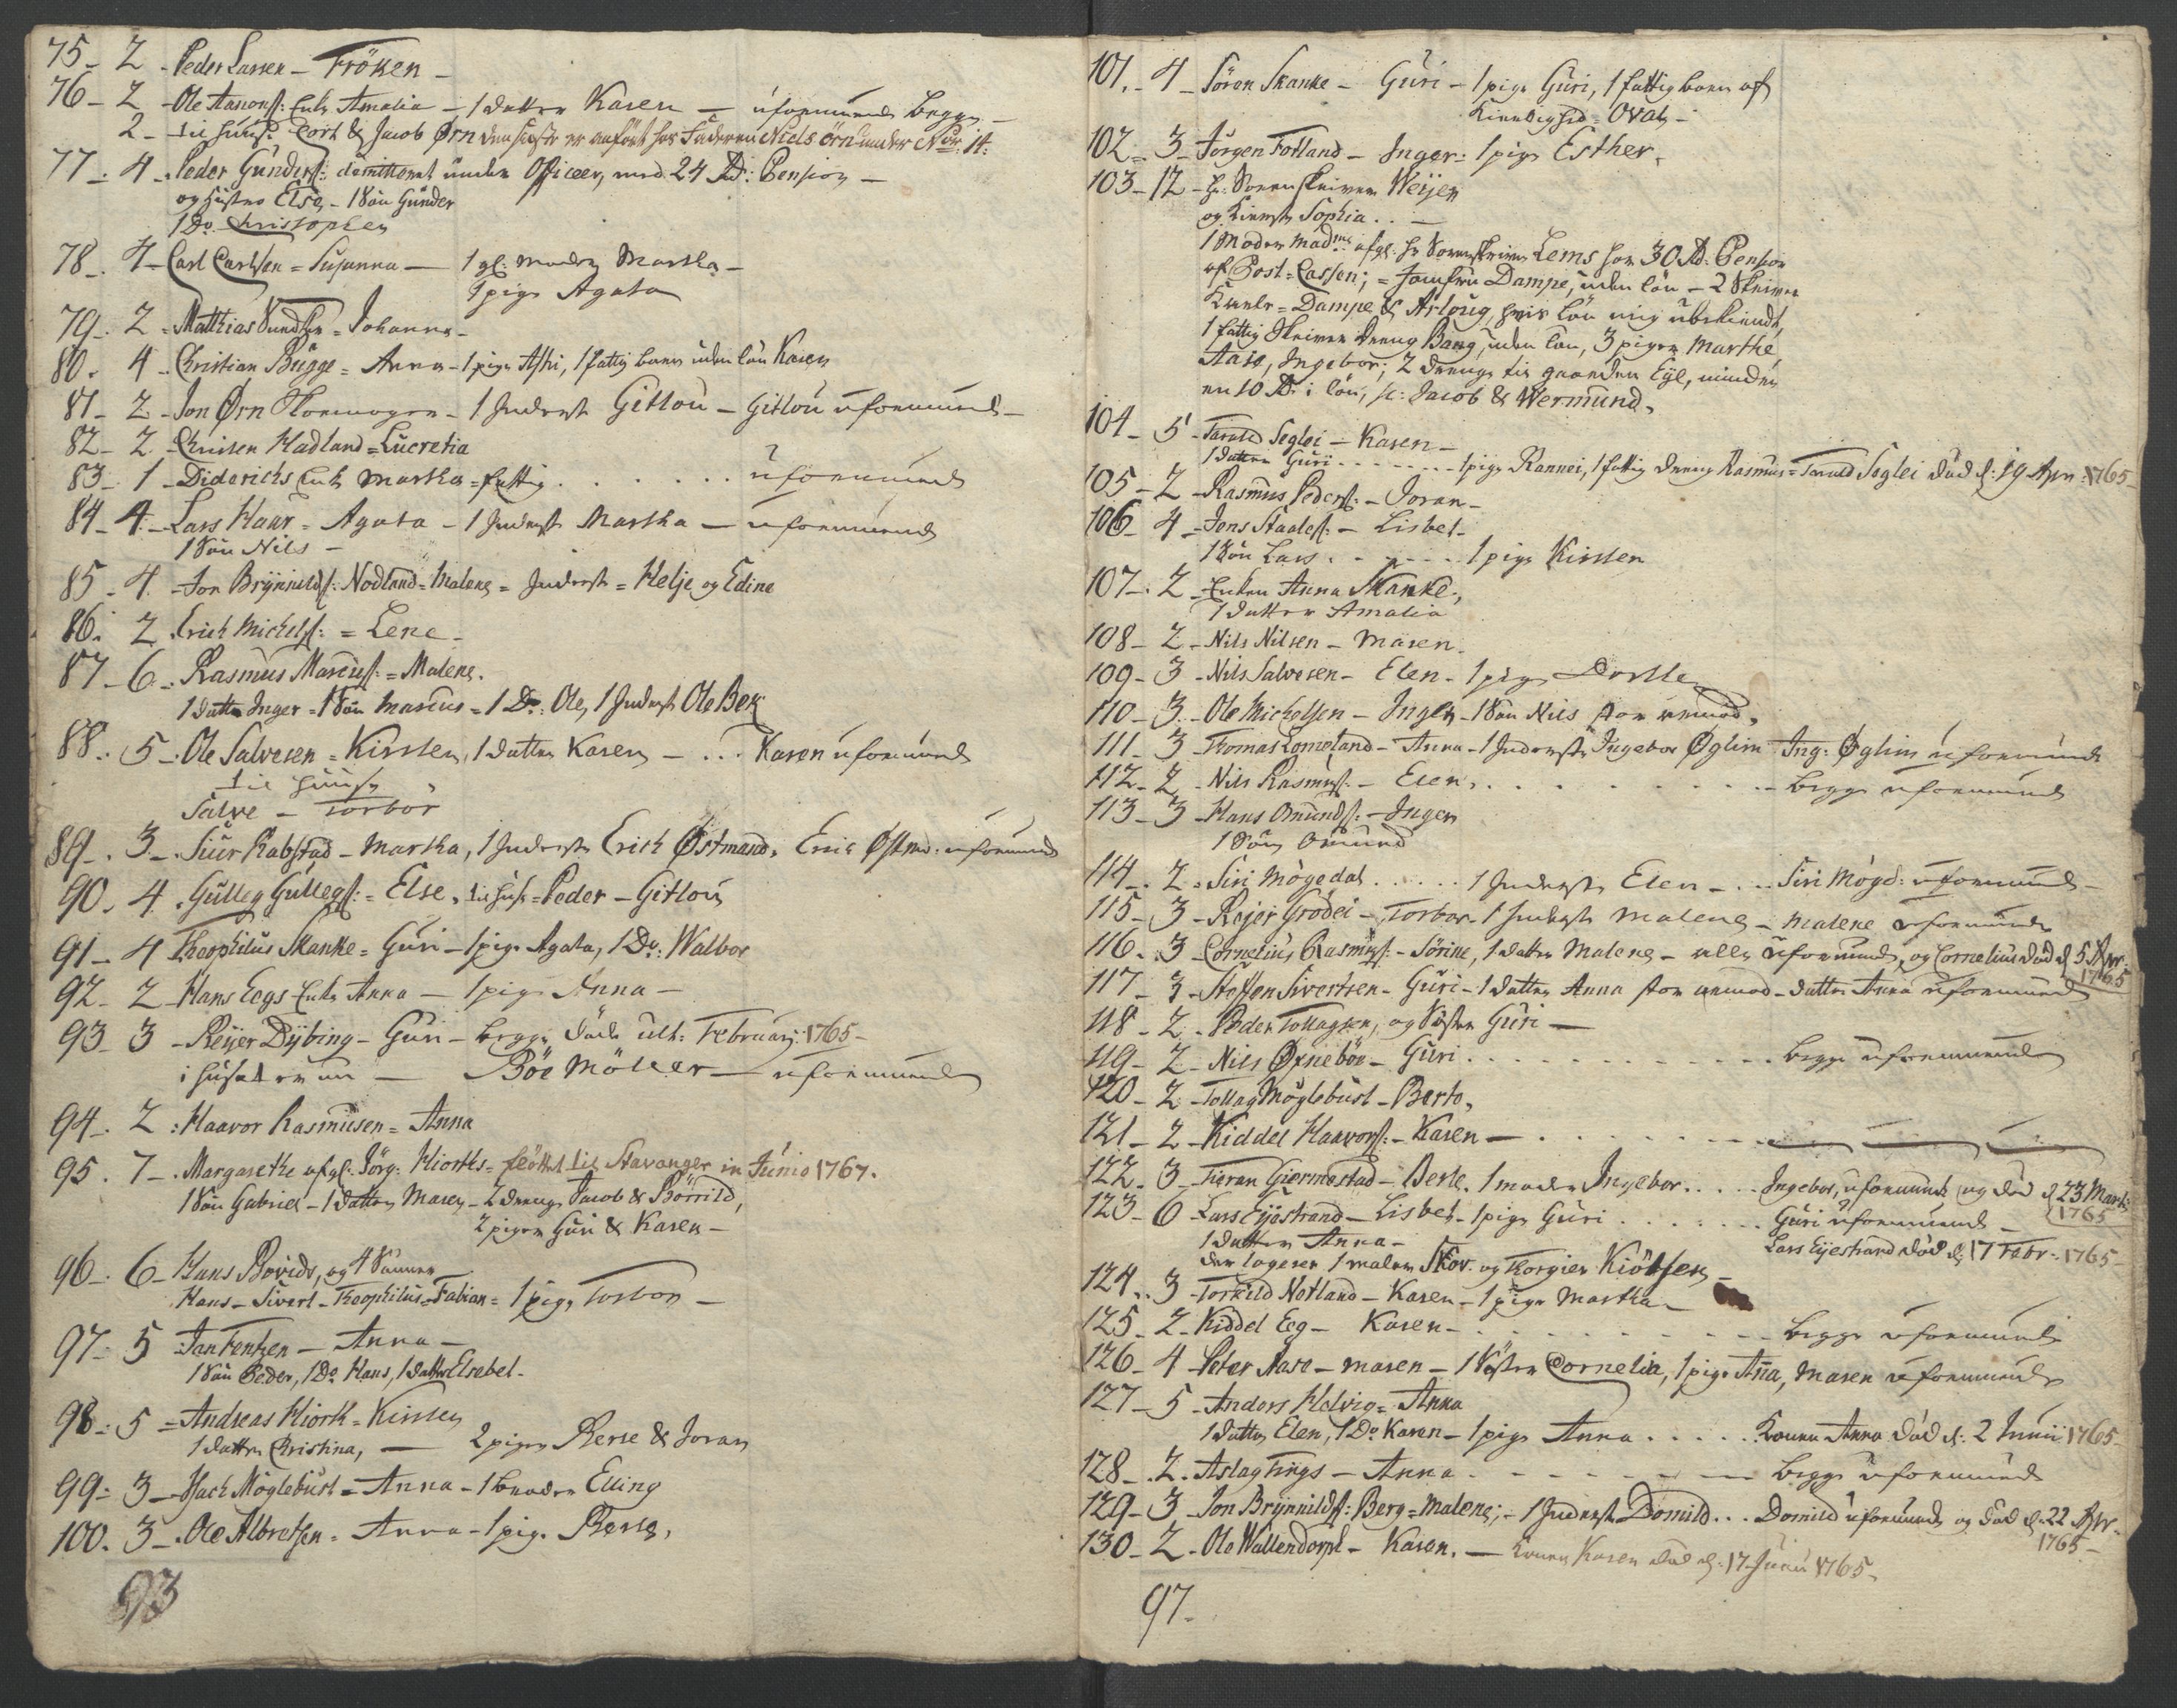 75 - 2 - Peder Larsen - Fröken -
76 - 2 - Ole Aanonss: Enke Amalia - 1 datter Karen - uformuende begge -
2 - til huuse Cort & Jacob Ørn den sidste er anfört hos Faderen Niels Örn under No: 14:
77 - 4 - Peder Gunderss: demitteret under Officeer, med 24 Rd: Pension -
og hustro Else, - 1 Sön Gunder
1 Do Christopher
78 - 4 - Carl Carlsen = Susanna - 1 gl: moder Martha -
1 pige Agata
79 - 2 - Matthias = Johanna -
80 - 4 - Christian Bugge = Anna - 1 pige Assri, 1 fattig barn uden lön Karen
81 - 2 - Jon Ørn - 1 Inderst Gitlou - Gitlou uformuende -
82 - 2 - Hadland = Lucretia
83 - 1 - Diderichs Enke Martha = fattig . . . . . . uformuende
84 - 4 - Lars Haar = Agata - 1 Inderst Martha - uformuende
1 Sön Nils -
85 - 4 - Jon Brynnildss: Nodland = Malene = Inderste = Helje og Edine
86 - 2 - Erich Michelss: = Lene -
87 - 6 - Rasmus Marcuss: = Malene.
1 datter Inger = 1 Sön Marcus = 1 Do: Ole, 1 Inderst Ole Bek
88 - 5 - Ole Salvesen = Kirsten, 1 datter Karen - . . . Karen uformuende
til huuse
Salve - Torbor
89 - 3 - Siur Rabstad - Martha, 1 Inderste Erich Östmand. Erich Östmd: uformuende
90 - 4 - Gulleg Gullegss: = Else, til huse = Peder - Gitlou
91 - 4 Theophilus Skanke = Guri - 1 pige Agata, 1 Do: Walbor
92 - 2 - Hans Eegs Enke Anna - 1 pige Anna -
93 - 3 - Reyer Dybing - Guri - begge döde ult: February: 1765 -
i huset er en - Böe Möller - uformuende
94 - 2 : Haavor Rasmusen = Anna
95 . 7 - Margarethe afgl: Jörg: Hiorths = flöttet til Stavanger in Junio 1767.
1 Sön Gabriel - 1 datter Maren - 2 drenge Jacob & Börrild,
2 piger Guri & Karen -
96 - 6 - Hans Bovids, og 4 Sönner
Hans - Sivert - Theophilus = Fabian = 1 pige Torbor -
97 - 5 Jan Fentzen - Anna -
1 Sön Peder, 1 Do Hans, 1 datter Elsebet -
98 - 5 = Andreas Hiorth = Kirsten
1 datter Christina, - 2 piger Berte & Joran
99 - 3 - Isach Möglebust = Anna - 1 broder Elling
100. 3 - Ole Albretsen = Anna - 1 pige Berte,
93
101. - 4 - Sören Skanke - Guri - 1 pige Guri, 1 fattig barn af
= Ovals -
102 - 3 - Jörgen Fotland - Inger: 1 pige Esther,
103 - 12 - Hr: Sorenskriver Weyer
og Kiereste Sophia . . -
1 Moder Madme afgl: Hr Sorenskriver Lems har 30 Rd: Pension
af Post = Cassen; = Jomfru Dampe, uden lön - 2 Skriver
Karle = Dampe & Arlouig, hvis lön mig ubekiendt,
1 fattig Skriver dreng Bang, uden lön, 3 piger Marthe,
Aase, Ingebor; 2 drenge til gaarden Eye, minder
en 10 Rd i lön, sc: Jacob & Wermund.
104 - 5 - Tarald Seglei - Karen -
1 datter Guri . . . . . . . 1 pige Rannei, 1 fattig dreng Rasmus = Tarald Seglei död d: 19 Apr: 1765 -
105 - 2 - Rasmus Pederss: - Joran -
106 - 4 - Jens Staaless: - Lisbet -
1 Sön Lars . . . . . . 1 pige Kirsten
107 - 2 - Enken Anna Skanke,
1 datter Amalia
108 - 2 - Nils Nilsen - Maren.
109 - 3 - Nils Salvesen - Elen - 1 pige Dorthe
110 - 3 - Ole Michelsen - Inger - 1 Sön Nils
111 - 3 - Thomas Lomeland - Anna - 1 Inderste Ingebor Øglim Ing: Øglim uformuende
112 - 2 - Nils Rasmuss: - Elen, . . . . . . . . - begge uformuende
113 - 3 - Hans Omundss: - Inger
1 Sön Omund
114 - 2 - Siri Mögedal . . . . . 1 Inderste Elen - . . Siri Mögd: uformuende -
115 - 3 - Rejer Grödei - Torbor - 1 Inderste Malene - Malene uformuende
116 - 3 - Cornelius Rasmuss: - Sörine, 1 datter Malene - alle uformuende, og Cornelius död d 5 Apr.
1765
117 - 3 - Steffen Sivertsen - Guri - 1 datter Anna - datter Anna uformuende
118 - 2 - Peder Tollagsen, og Söster Guri -
119 - 2 - Nils Ørnebör - Guri . . . . . . . . . begge uformuende
120 - 2 - Tollag Möglebust - Berto,
121 - 2 - Kiddel Haavorss: - Karen - . . . . . . .
122 - 3 - Tieran Giermestad - Berte, 1 moder Ingebor . . . . Ingebor, uformuende og död d 23 Marti:
1765
123 - 6 - Lars Eyestrand - Lisbet - 1 pige Guri . . . . . . . Guri uformuende -
1 datter Anna - Lars Eyestrand död d: 17 Febr: 1765 -
der logerer 1 maler Skov. og Torgier Kiöbsen -
124 . 3 - Torkild Notland - Karen - 1 pige Martha -
125 - 2 - Kiddel Eeg - Karen - . . . . . . . - begge uformuende
126 - 4 - Peter Aase - Maren - 1 Söster Cornelia, 1 pige Ana, Maren uformuende
127 - 5 - Anders Helvig = Anna
1 datter Elen, 1 Do Karen - 1 pige Anna . . . . Konen Anna död d: 2 Junii 1765 -
128 - 2 - Aslag Tings - Anna . - - - - begge uformuende
129 - 3 - Jon Brynnildss: Berg = Malene; - 1 Inderst Domild . . . Domild uformuende og död d: 22 Apr.
1765 -
130 - 2 - Ole Wallendorph - Karen. - Konen Karen död d: 17 Junii 1765 -
97 -